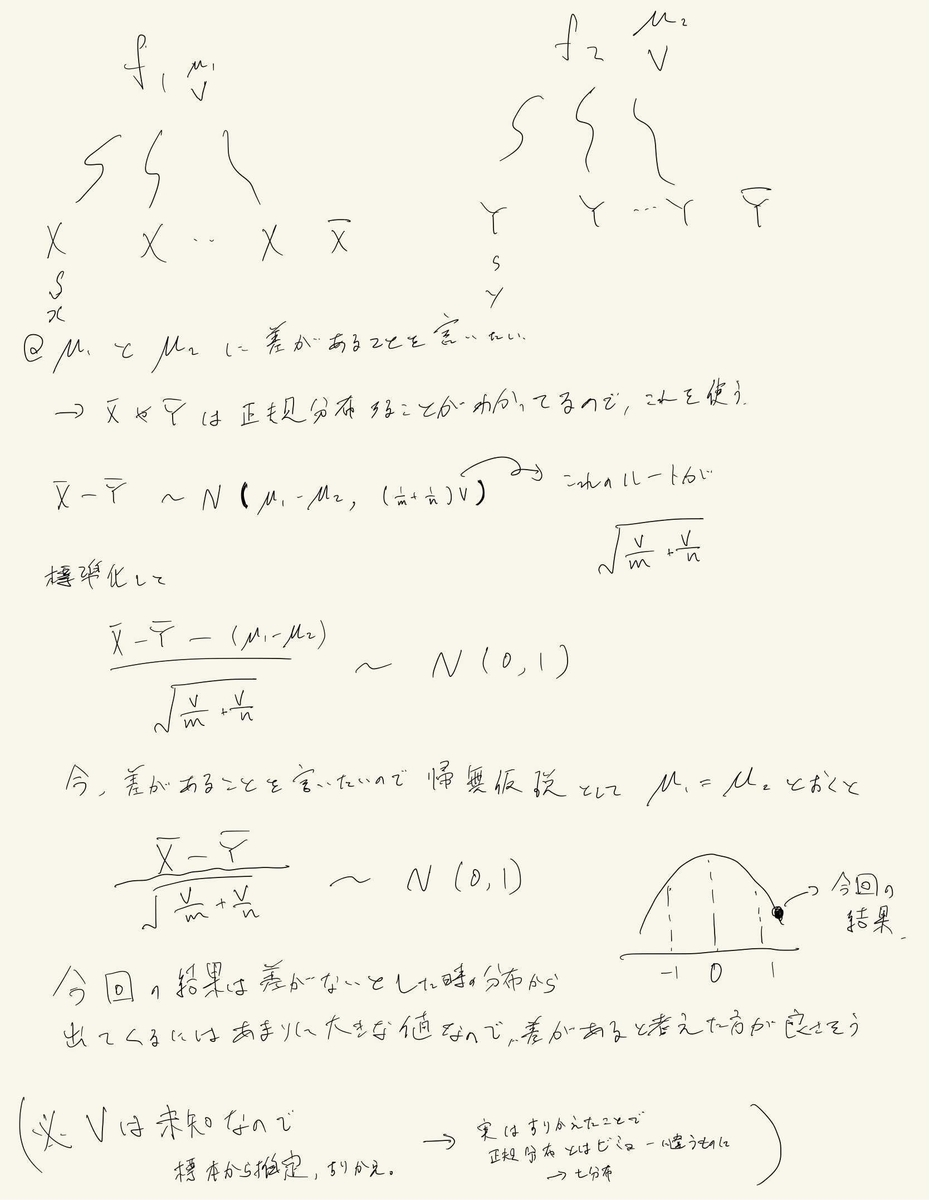 f₁ μ₁
V
f₂ μ₂
V
X X ‥ X X̄
Y Y … Y Ȳ
x
y
@ μ₁ と μ₂ に差があることを言いたい.
→ X̄ や Ȳ は正規分布することがわかってるので, これを使う.
X̄ - Ȳ ~ N(μ₁-μ₂, (1/m + 1/n)V) → これのルートが
√(V/m + V/n)
標準化して
(X̄ - Ȳ - (μ₁-μ₂)) / √(V/m + V/n) ~ N(0, 1)
今, 差があることを言いたいので 帰無仮説として μ₁ = μ₂ とおくと
(X̄ - Ȳ) / √(V/m + V/n) ~ N(0, 1)
→ 今回の
結果.
-1 0 1
今回の結果は差がないとした時の分布から
出てくるにはあまりに大きな値なので, 差があると考えた方が良さそう
(※ Vは未知なので
標本から推定, すりかえ.
→ 実はすりかえたことで
正規分布とはビミョーに違うものに
→ t分布)